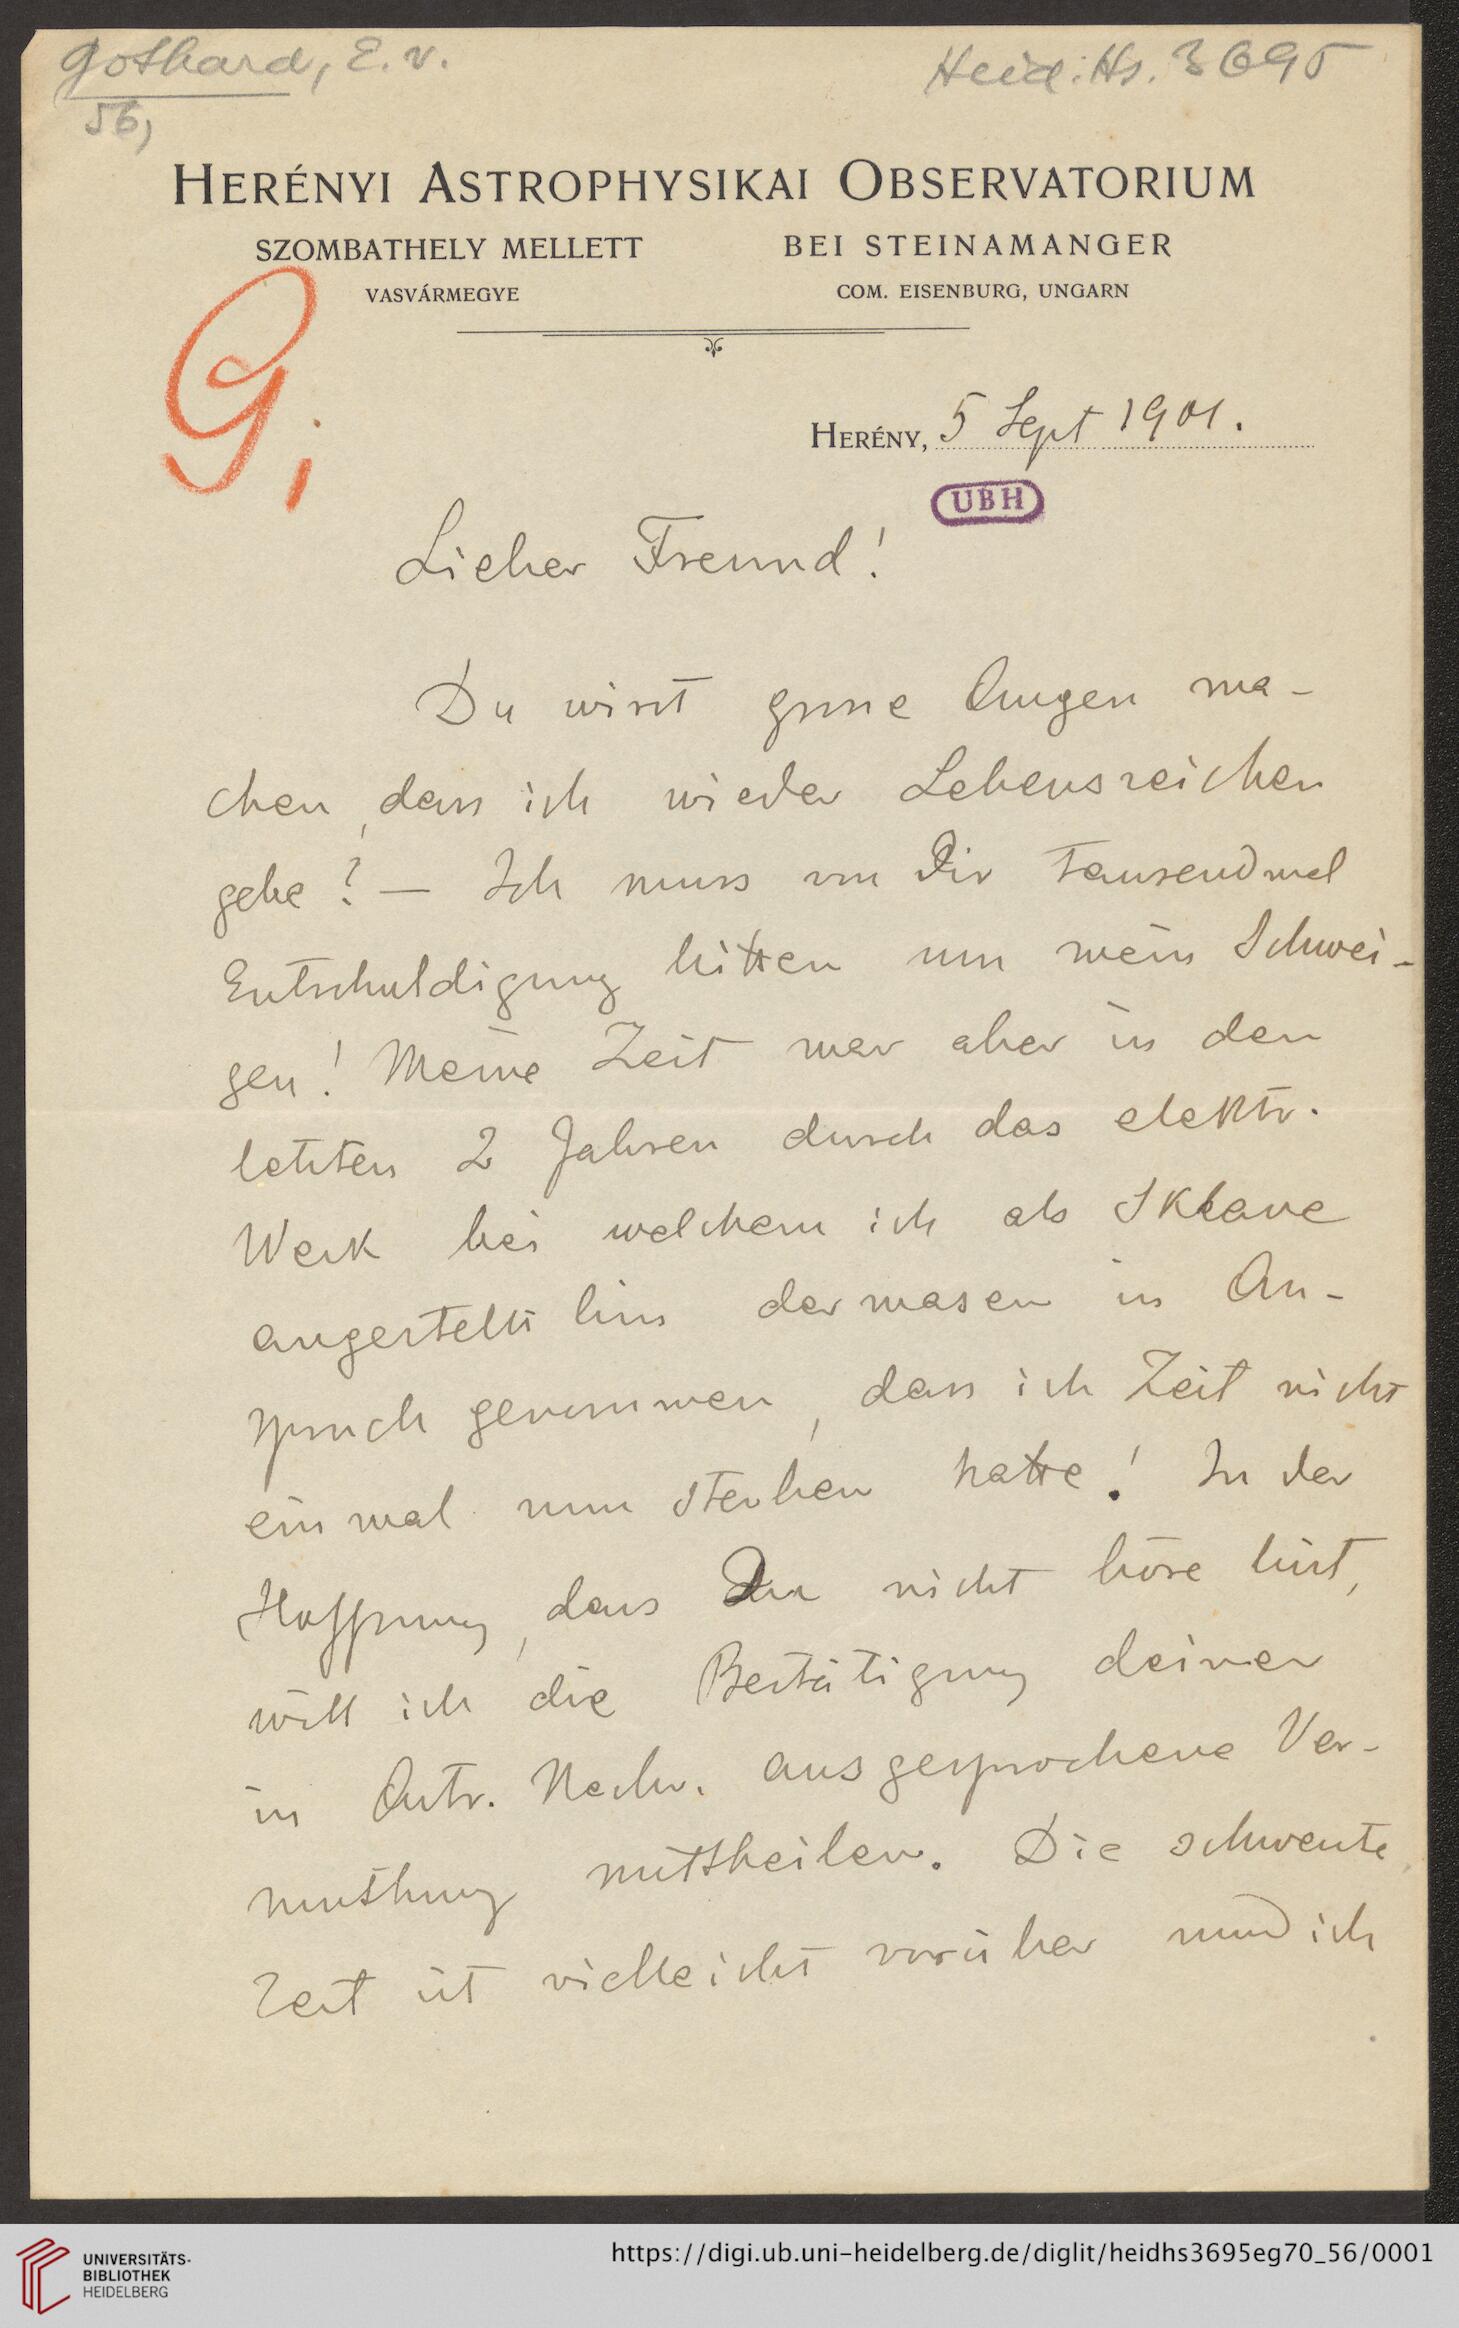 Gothard, E. v.
Heid. Hs. 3695
56,
HERÉNYI ASTROPHYSIKAI OBSERVATORIUM
SZOMBATHELY MELLETT
BEI STEINAMANGER
VASVÁRMEGYE
COM. EISENBURG, UNGARN
G;
HERÉNY, 5 Sept 1901.
UBH
Lieber Freund!
Du wirst grosse Augen ma-
chen, dass ich wieder Lebenszeichen
gebe? – Ich muss von Dir Tausendmal
Entschuldigung bitten um mein Schwei-
gen! Meine Zeit war aber in den
letzten 2 Jahren durch das elektr.
Werk bei welchem ich als Sklave
angestellt bin dermasen in An-
spruch genommen, dass ich Zeit nicht
einmal zum sterben hatte! In der
Hoffnung, dass Du nicht böse bist,
will ich die Bestätigung deiner
in Astr. Nachr. ausgesprochene Ver-
muthung mittheilen. Die schwerste
Zeit ist vielleicht vorüber und ich
UNIVERSITÄTS-
BIBLIOTHEK
HEIDELBERG
https://digi.ub.uni-heidelberg.de/diglit/heidhs3695eg70_56/0001